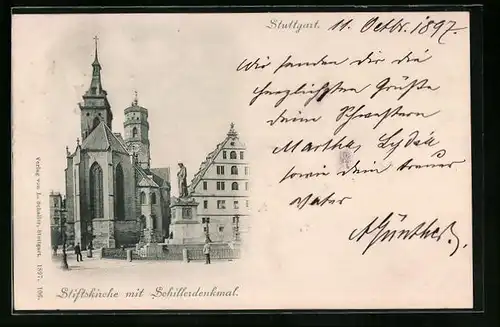 Stuttgart. 11. Octbr. 1897.
Wir senden dir die
herzlichsten Grüße
deine Schwestern
Martha, Lydia
sowie dein treuer
Vater
A Günther.
Stiftskirche mit Schillerdenkmal.
Verlag von Lu. Schaller, Stuttgart. 1897. 106.